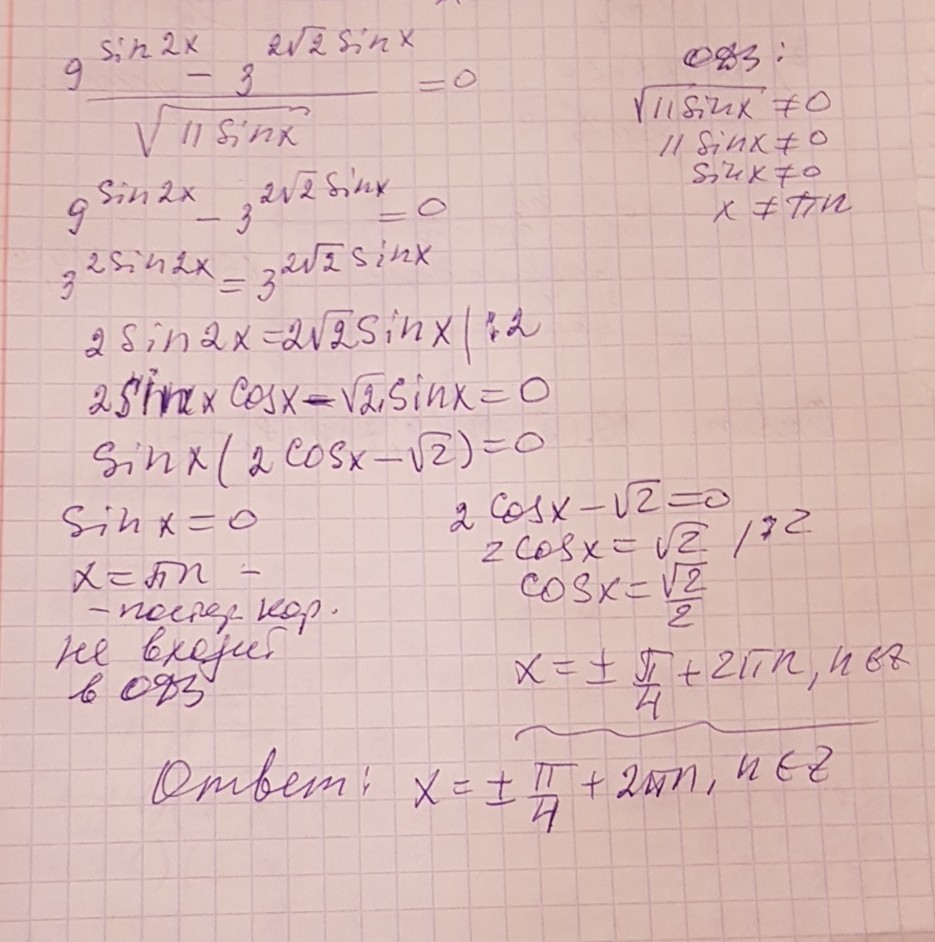 9^{sin 2x} - 3^{2√2 sin x}
————————— = 0
√(11 sin x)
ОДЗ:
√(11 sin x) ≠ 0
11 sin x ≠ 0
sin x ≠ 0
x ≠ πn
9^{sin 2x} - 3^{2√2 sin x} = 0
3^{2 sin 2x} = 3^{2√2 sin x}
2 sin 2x = 2√2 sin x | :2
2 sin x cos x - √2 sin x = 0
sin x (2 cos x - √2) = 0
sin x = 0
x = πn -
- постор. кор.
не входит
в ОДЗ
2 cos x - √2 = 0
2 cos x = √2 / :2
cos x = √2/2
x = ± π/4 + 2πn, n ∈ Z
Ответ: x = ± π/4 + 2πn, n ∈ Z